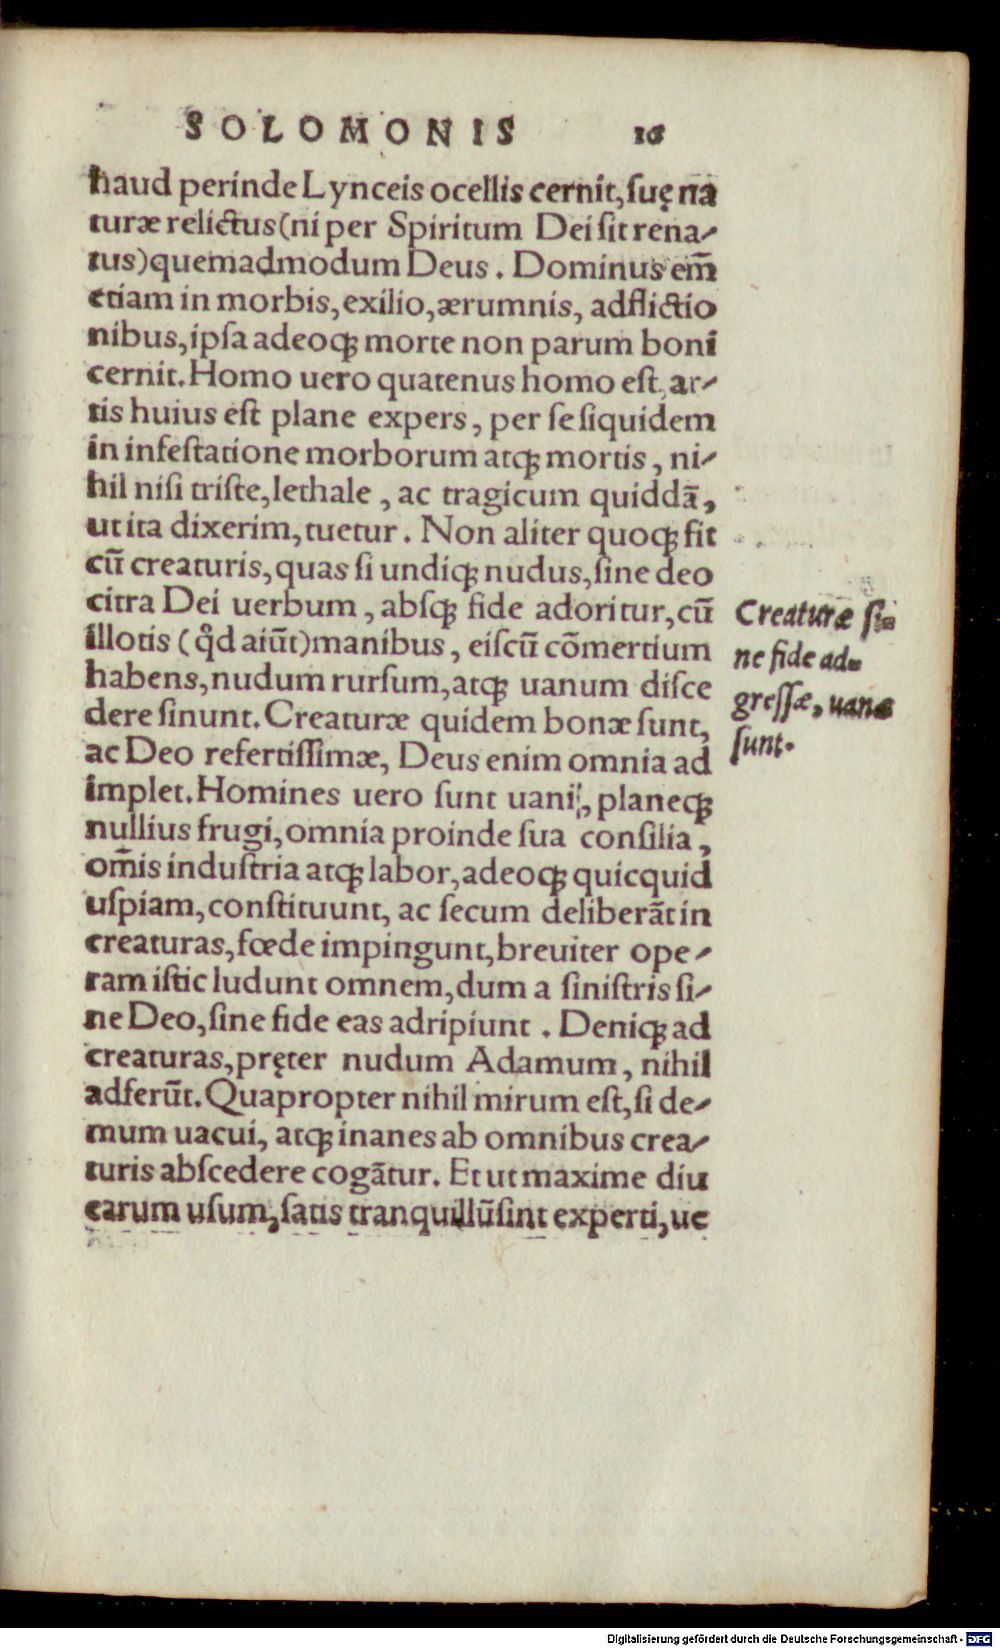 SOLOMONIS 16
haud perinde Lynceis ocellis cernit, suę na
turæ relictus (ni per Spiritum Dei sit rena-
tus) quemadmodum Deus. Dominus em̃
etiam in morbis, exilio, ærumnis, adflictio
nibus, ipsa adeoqꝫ morte non parum boni
cernit. Homo uero quatenus homo est, ar-
tis huius est plane expers, per se siquidem
in infestatione morborum atqꝫ mortis, ni-
hil nisi triste, lethale, ac tragicum quiddã,
ut ita dixerim, tuetur. Non aliter quoqꝫ fit
cũ creaturis, quas si undiqꝫ nudus, sine deo
citra Dei uerbum, absqꝫ fide adoritur, cũ
illotis (qd̊ aiũt) manibus, eiscũ cõmertium
habens, nudum rursum, atqꝫ uanum disce
dere sinunt. Creaturæ quidem bonæ sunt,
ac Deo refertissimæ, Deus enim omnia ad
implet. Homines uero sunt uani, planecꝫ
nullius frugi, omnia proinde sua consilia,
om̃is industria atqꝫ labor, adeoqꝫ quicquid
uspiam, constituunt, ac secum deliberãt in
creaturas, fœde impingunt, breuiter ope-
ram istic ludunt omnem, dum a sinistris si-
ne Deo, sine fide eas adripiunt. Deniqꝫ ad
creaturas, pręter nudum Adamum, nihil
adferũt. Quapropter nihil mirum est, si de-
mum uacui, atqꝫ inanes ab omnibus crea-
turis abscedere cogãtur. Et ut maxime diu
earum usum, satis tranquillũ sint experti, ue
Creaturæ si-
ne fide ad-
gressæ, uanæ
sunt.
Digitalisierung gefördert durch die Deutsche Forschungsgemeinschaft - DFG